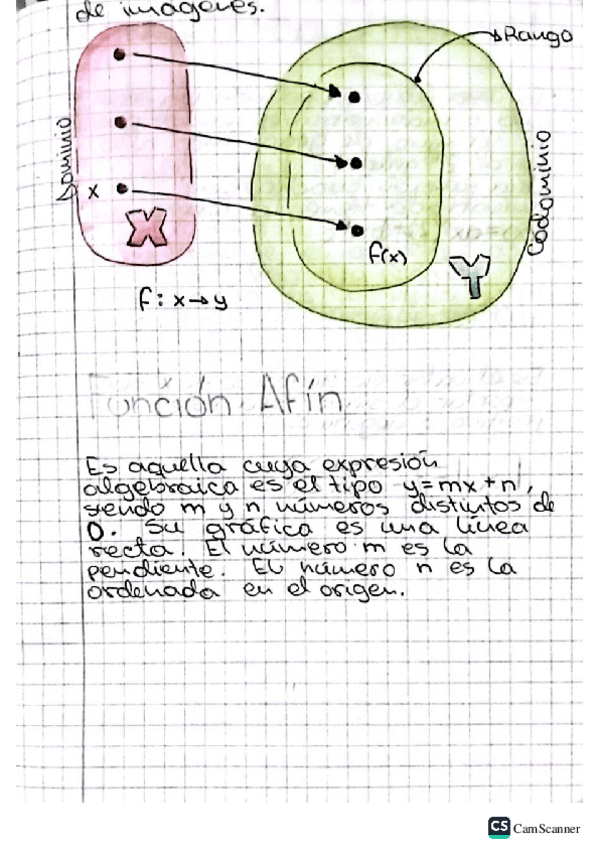 de imágenes.
Rango
Dominio
Codominio
x
X
f(x)
Y
f: x→y
Función Afín
Es aquella cuya expresión
algebraica es el tipo y=mx+n,
siendo m y n números distintos de
0. Su gráfica es una línea
recta. El número m es la
pendiente. El número n es la
ordenada en el origen.
CS CamScanner